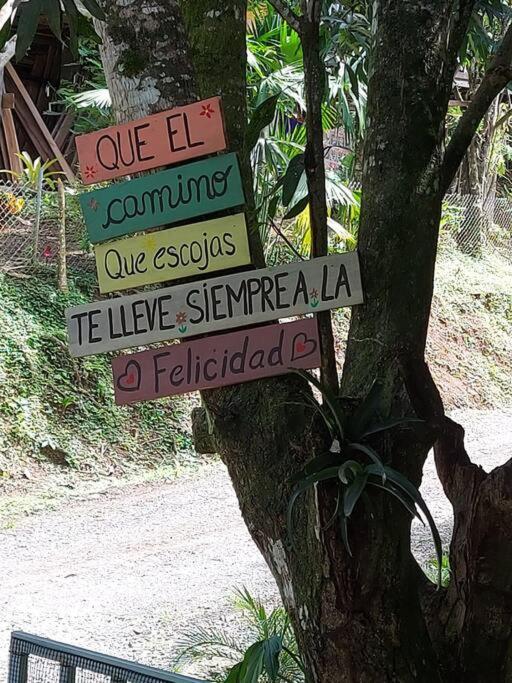 QUE EL
camino
Que escojas
TE LLEVE SIEMPRE A LA
Felicidad